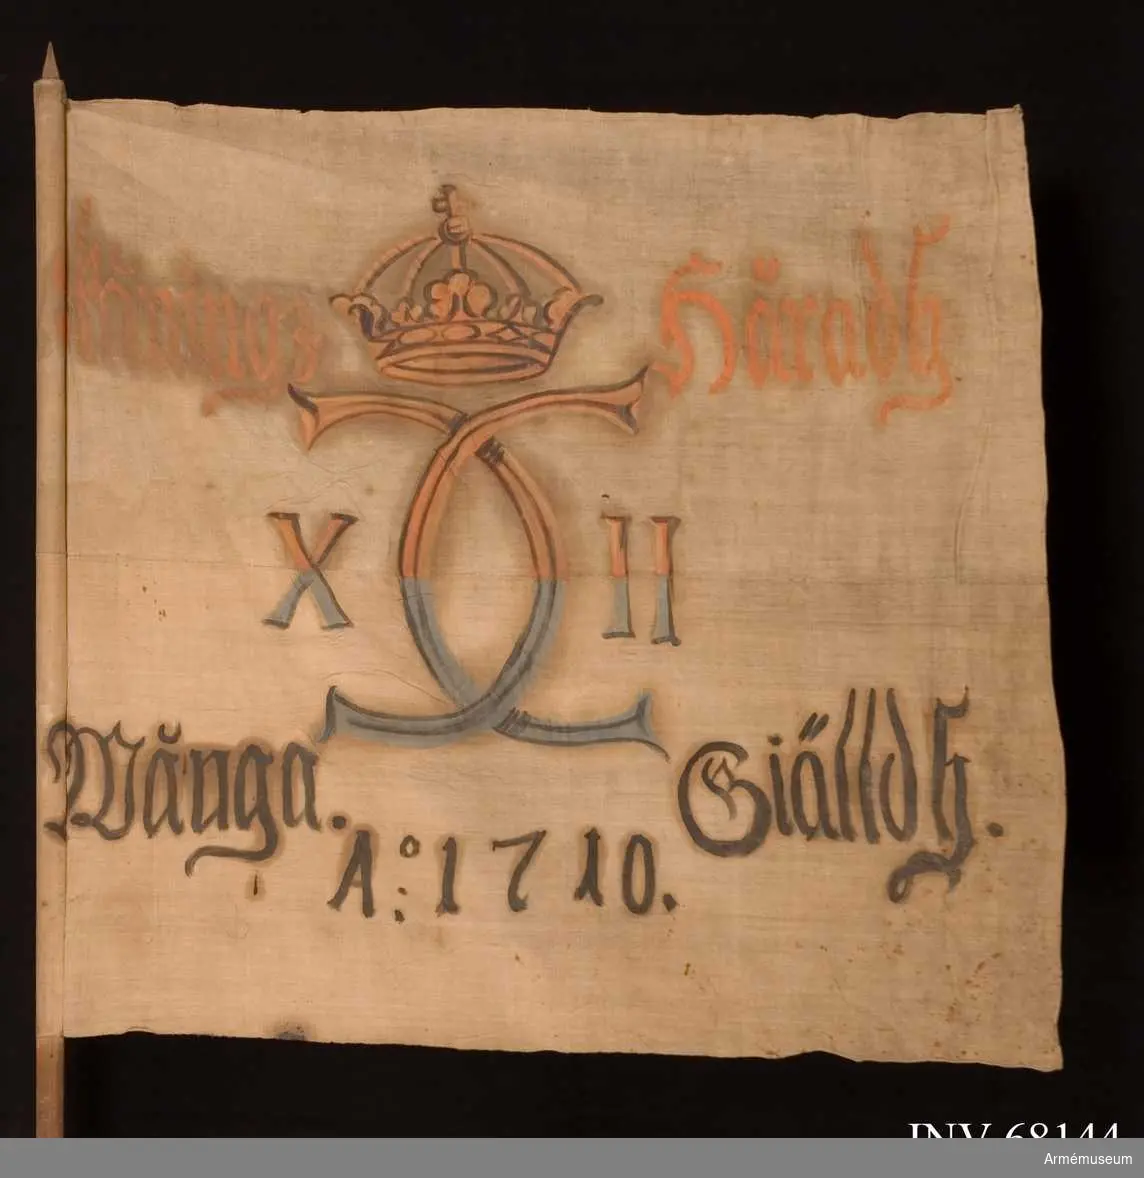 Häradh
X II
Många. Giälldh.
Ao: 1710.
INV 68144
Armémuseum